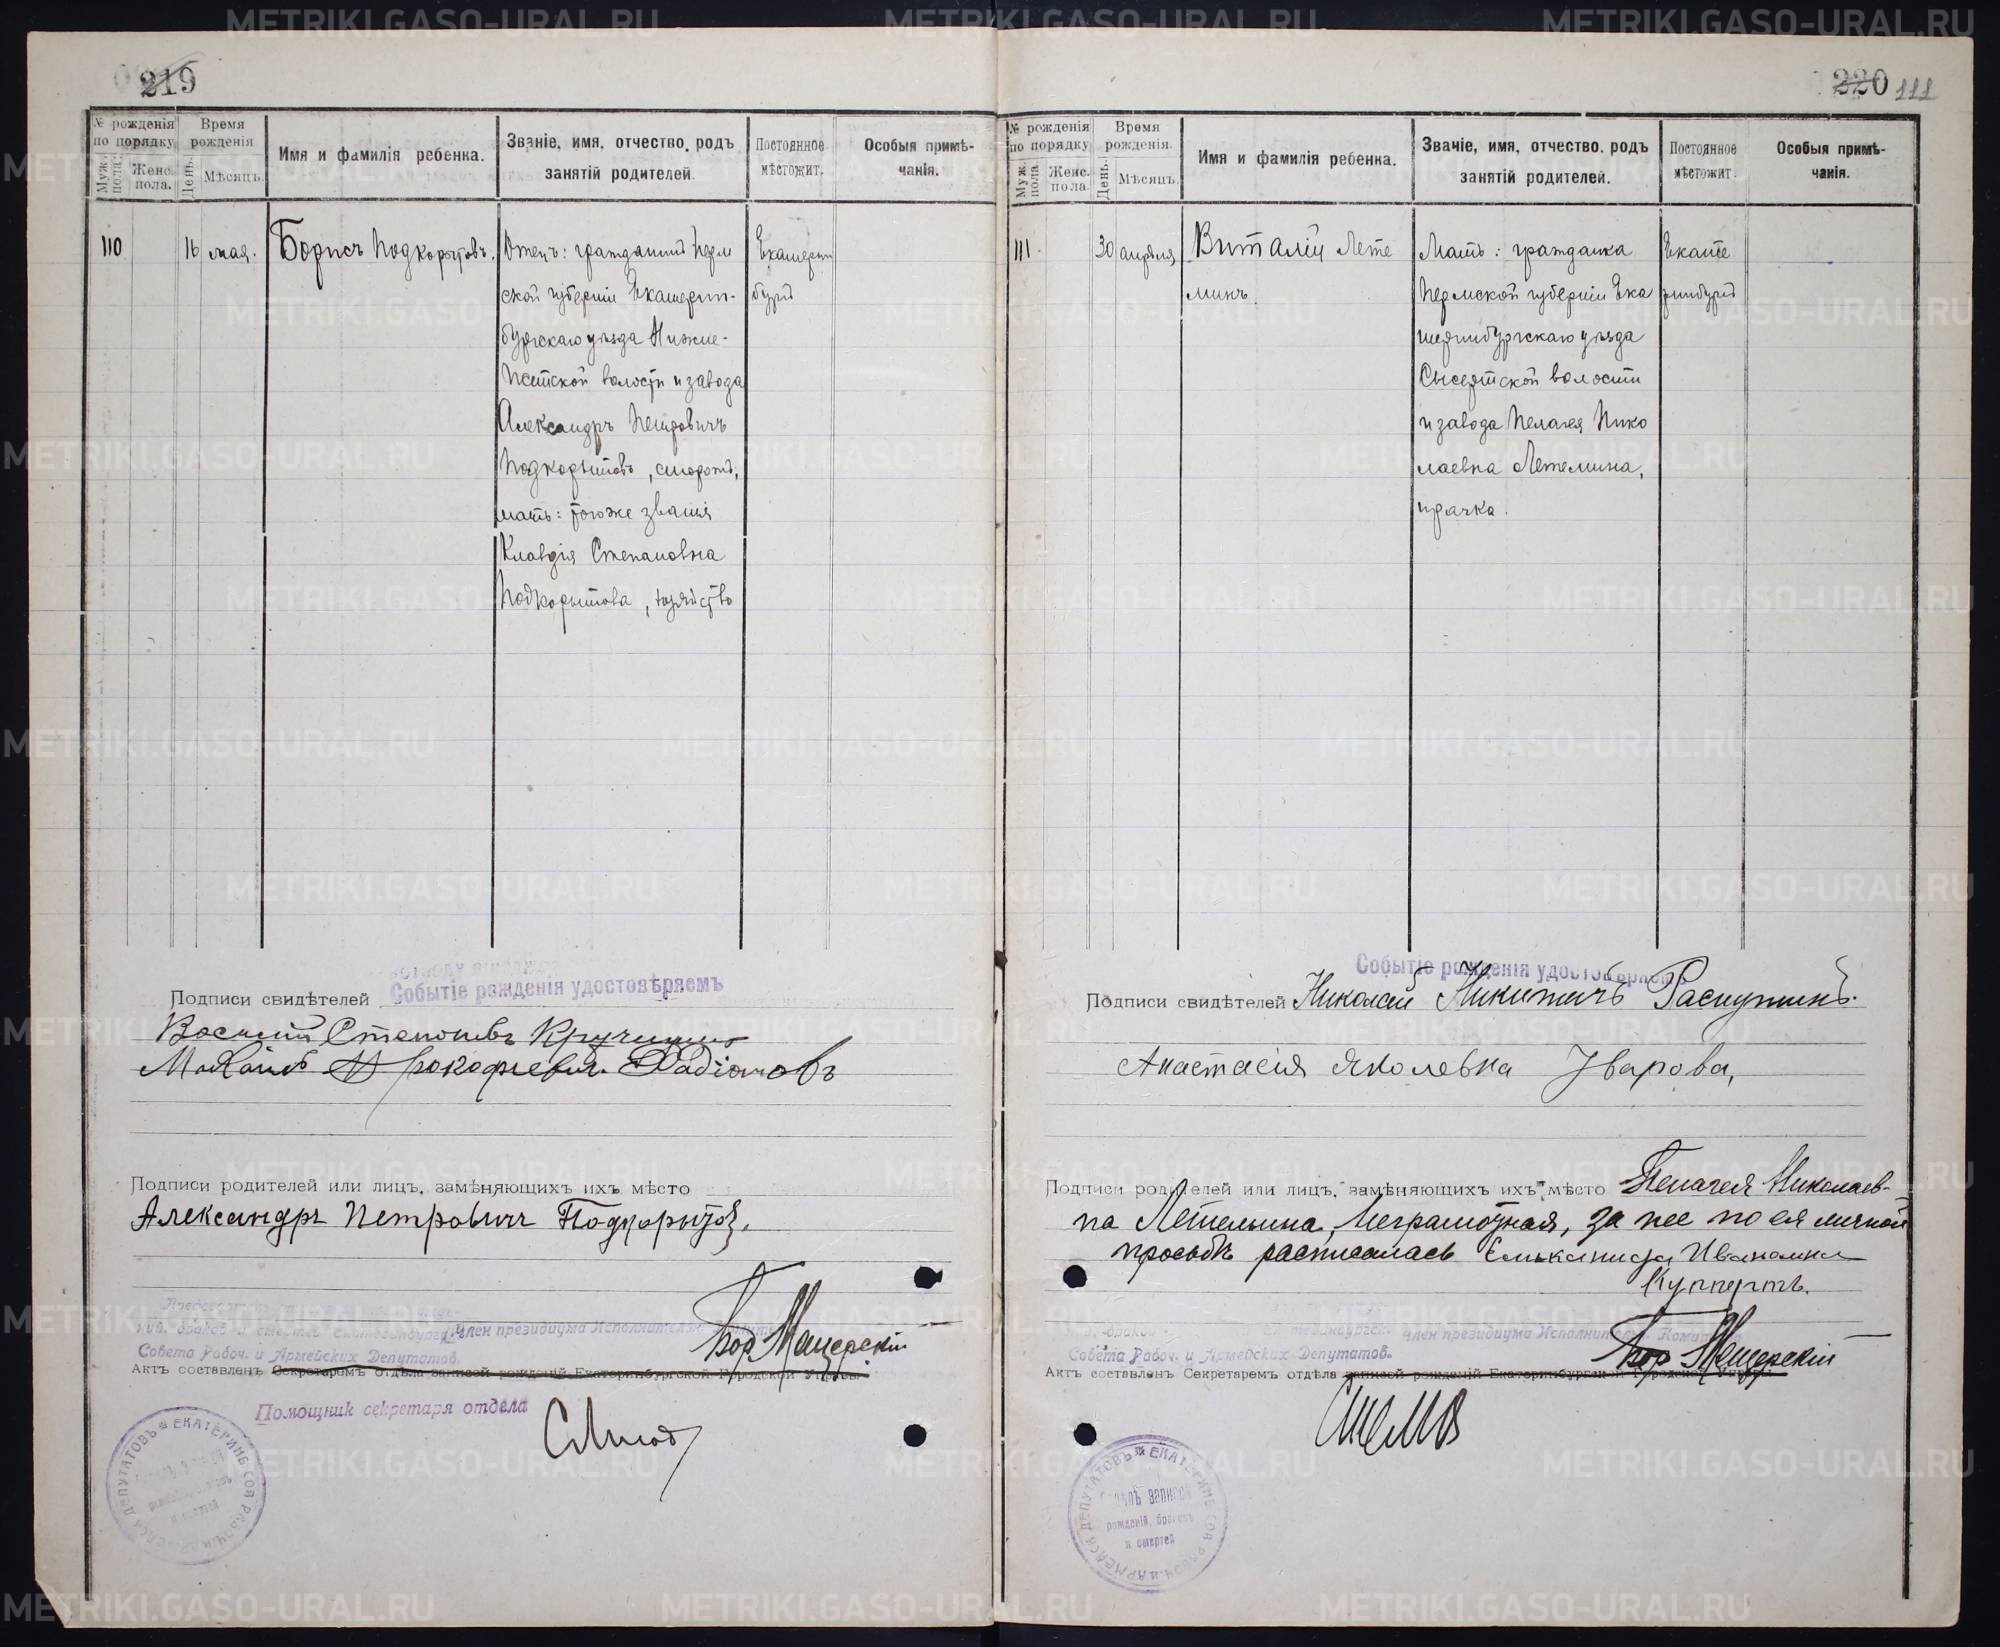 219
№ рожденія по порядку
Муж. пола.
Женс. пола.
Время рожденія
День.
Мѣсяцъ.
Имя и фамилія ребенка.
Званіе, имя, отчество, родъ
занятій родителей.
Постоянное
мѣстожит.
Особыя примѣ-
чанія.
110
16 мая.
Борисъ Подкорытовъ.
Отецъ: гражданинъ Перм
ской губерніи Екатерин-
бургскаго уѣзда Нижне-
Исетской волости и завода
Александръ Петровичъ
Подкорытовъ, сторожъ,
мать: того же званія
Клавдія Степановна
Подкорытова, хозяйство
Екатерин
бургъ
Событіе рожденія удостовѣряемъ
Подписи свидѣтелей
Василій Степановъ
Михаилъ Прокопьевич Радіоновъ
Подписи родителей или лицъ, замѣняющихъ ихъ мѣсто
Александръ Петровичъ Подкорытов.
Член президиума Исполнительн.
Совета Рабоч. и Армейских Депутатов.
Бор Мещерскій
Актъ составленъ Секретаремъ отдѣла записей рожденій Екатеринбургской Городской Управы
Помощник секретаря отдела
220 111
№ рожденія по порядку
Муж. пола
Женс. пола
Время рожденія.
День.
Мѣсяцъ.
Имя и фамилія ребенка.
Званіе, имя, отчество, родъ
занятій родителей.
Постоянное
мѣстожит.
Особыя примѣ-
чанія.
111.
30 апрѣля
Виталій Лете
минъ.
Мать: гражданка
Пермской губерніи Ека
теринбургскаго уѣзда
Сысертской волости
и завода Пелагея Нико
лаевна Летемина,
прачка.
Екате
ринбургъ
Событіе рожденія удостовѣряемъ
Подписи свидѣтелей Николай Никитичъ Распутинъ.
Анастасія Яковлевна Уварова,
Подписи родителей или лицъ, замѣняющихъ ихъ мѣсто Пелагея Николаев-
на Летемина, неграмотная, за нее по ея личной
просьбѣ расписалась Ивановна
Куппертъ.
Член президиума Исполнительн. Комитета
Совета Рабоч. и Армейских Депутатов.
Бор Мещерскій
Актъ составленъ Секретаремъ отдѣла записей рожденій Екатеринбургской Городской Управы
рожденій, браковъ
и смертей
METRIKI.GASO-URAL.RU